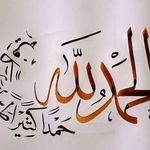 الحمد لله
حمدًا كثيرًا